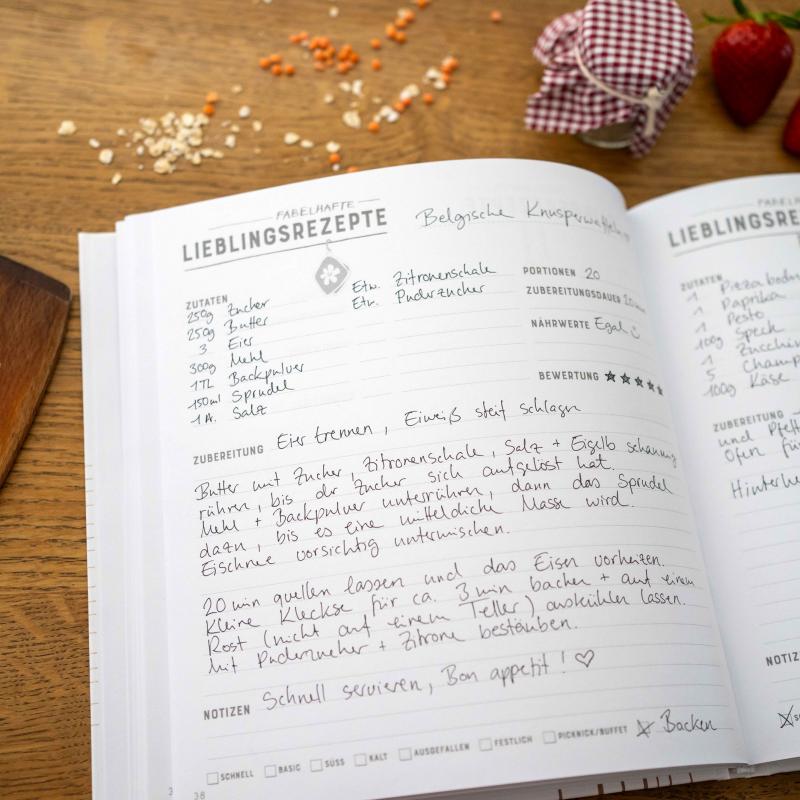 FABELHAFTE
LIEBLINGSREZEPTE
Belgische Knusperwaffeln
ZUTATEN
250g Zucker
250g Butter
3 Eier
300g Mehl
1TL Backpulver
150ml Sprudel
1 P. Salz
Etw. Zitronenschale
Etw. Puderzucker
PORTIONEN 20
ZUBEREITUNGSDAUER
NÄHRWERTE Egal
BEWERTUNG
ZUBEREITUNG Eier trennen, Eiweiß steif schlagen
Butter mit Zucker, Zitronenschale, Salz + Eigelb schaumig
rühren, bis der Zucker sich aufgelöst hat.
Mehl + Backpulver unterrühren, dann das Sprudel
dazu, bis es eine mitteldicke Masse wird.
Eischnee vorsichtig untermischen.
20 min quellen lassen und das Eisen vorheizen.
Kleine Kleckse für ca. 3 min backen + auf einem
Rost (nicht auf einem Teller) auskühlen lassen.
Mit Puderzucker + Zitrone bestäuben.
NOTIZEN Schnell servieren, Bon appetit! ♡
SCHNELL BASIC SÜSS KALT AUSGEFALLEN FESTLICH PICKNICK/BUFFET Backen
38
FABELHAFTE
LIEBLINGSRE
ZUTATEN
1 Pizzaboden
1 Paprika
1 Pesto
100g Speck
1 Zucchini
5 Champ
100g Käse
ZUBEREITUNG
und Pfeff
Ofen für
Hinterhe
NOTIZ